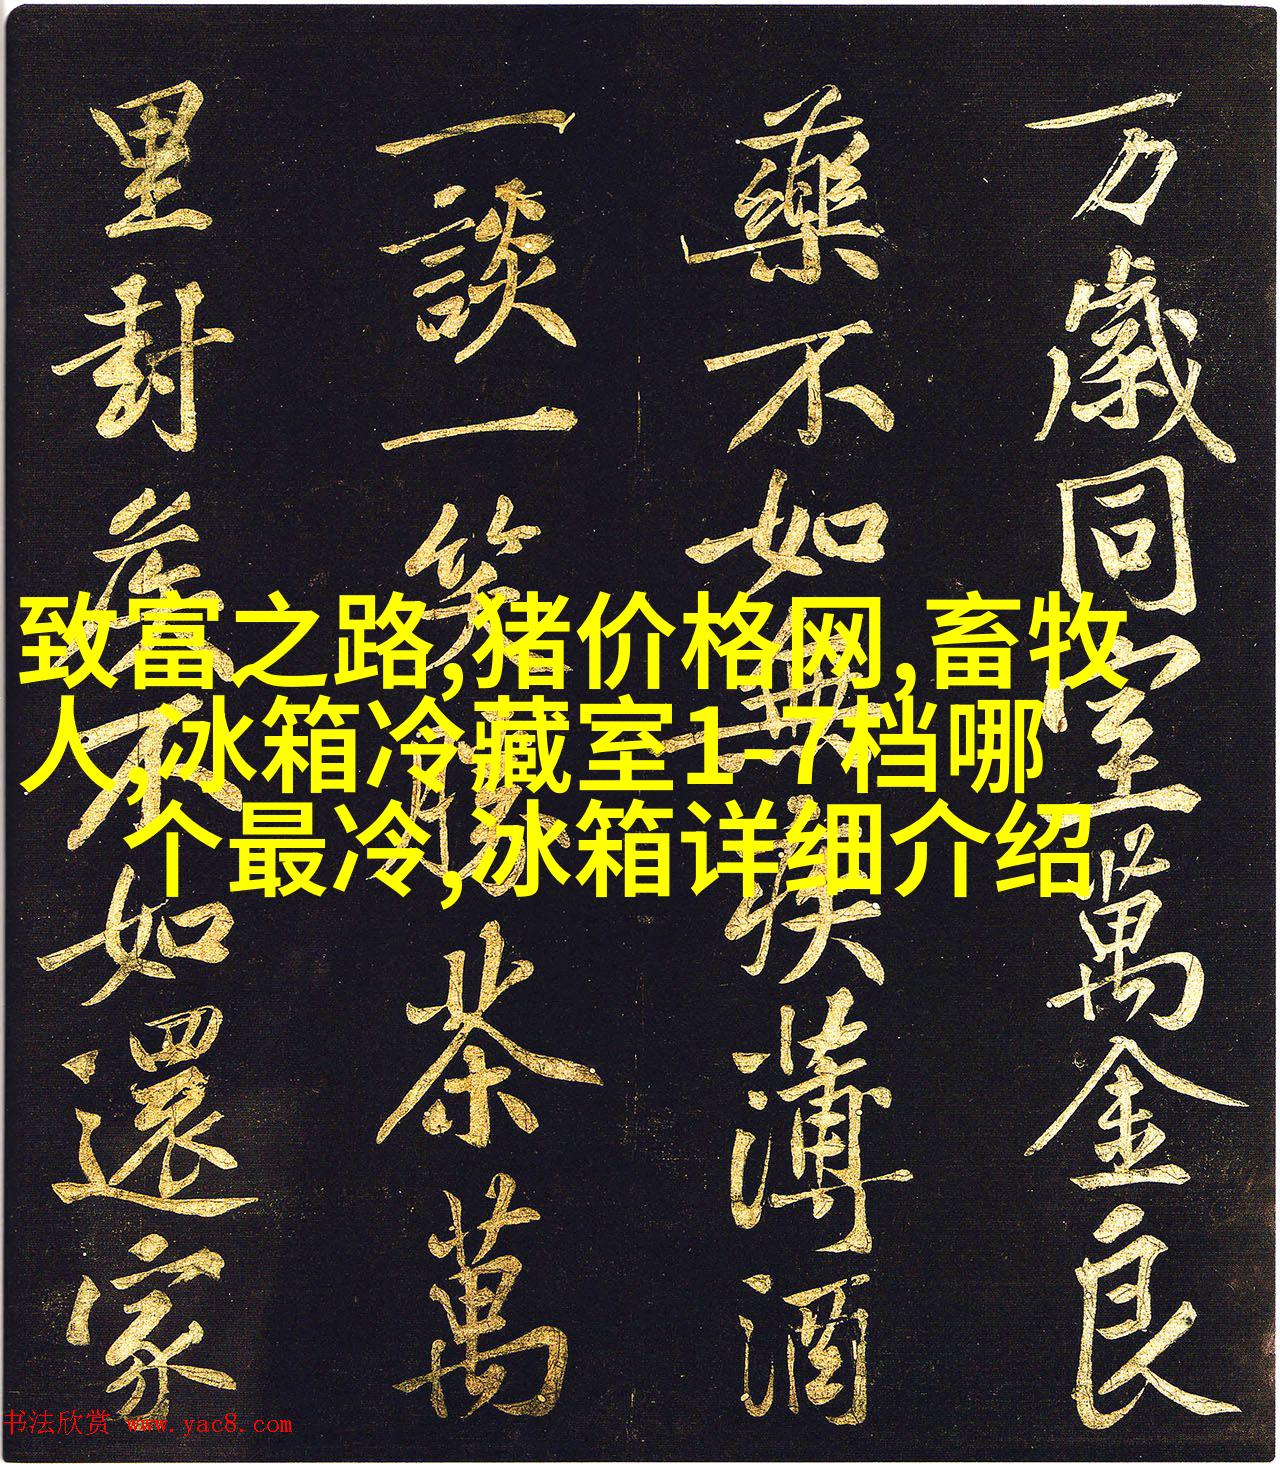 万歲同室萬金良
藥不如無疾薄酒
一談一笑勝茶萬
里封侯不如還家
致富之路,猪价格网,畜牧
人,冰箱冷藏室1-7档哪
个最冷,冰箱详细介绍
书法欣赏 www.yac8.com